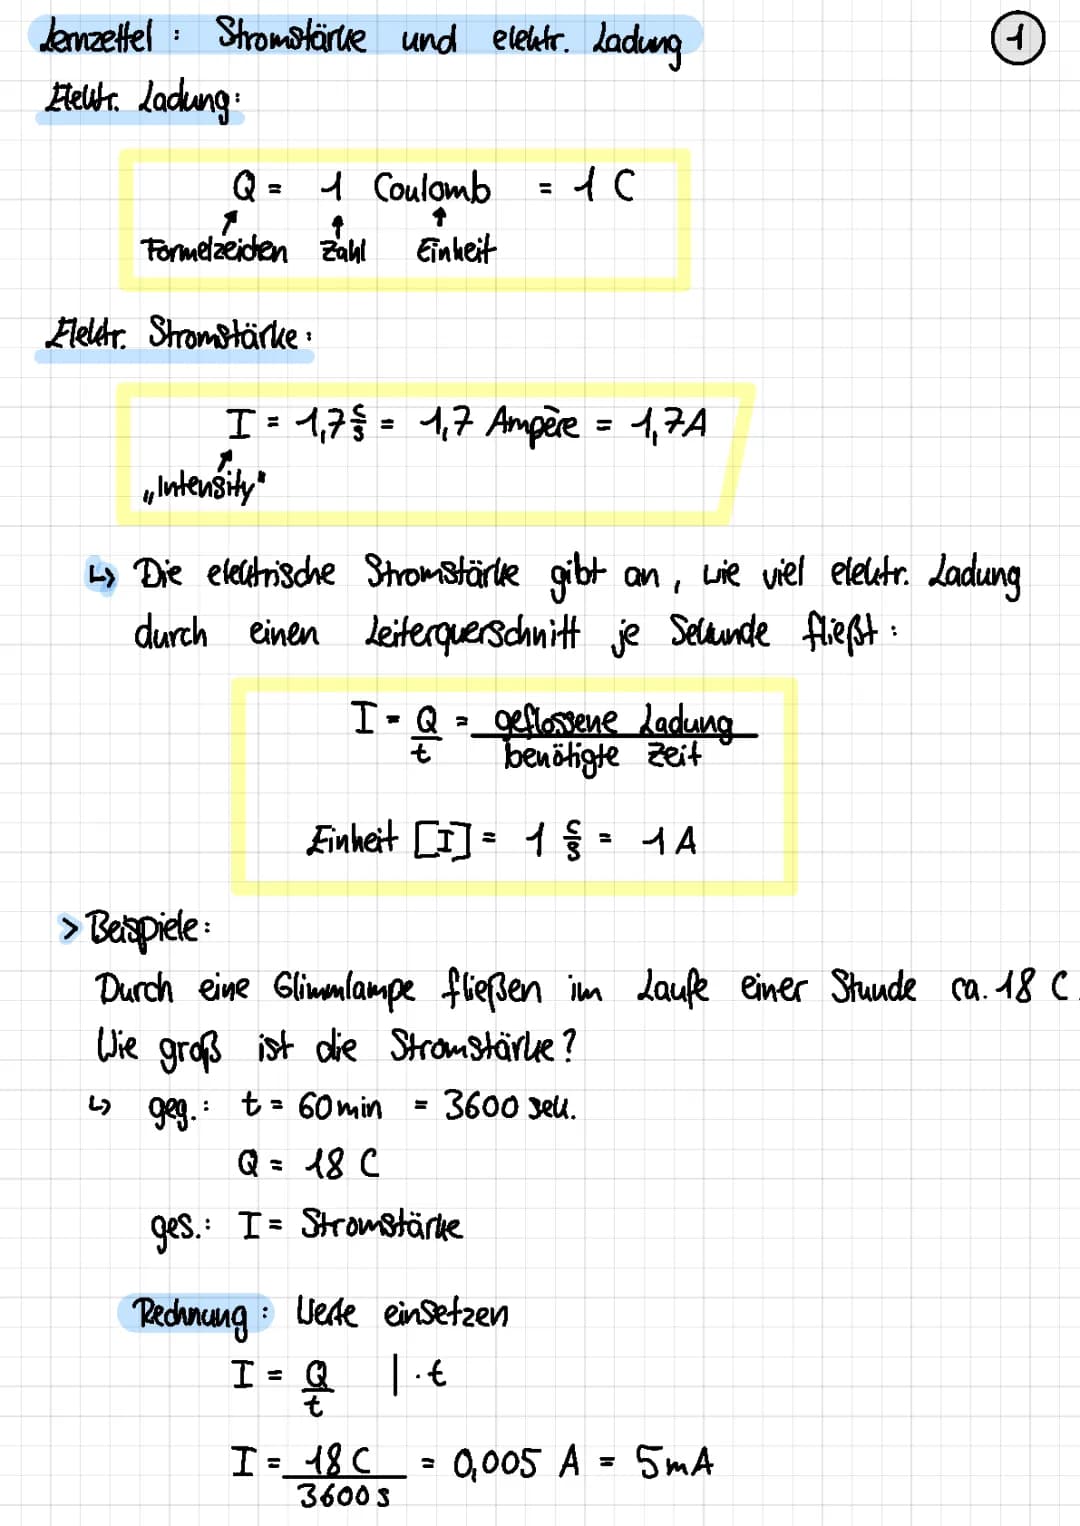 Lernzettel : Stromstärke und elektr. Ladung
1
Elektr. Ladung:
Q = 1 Coulomb = 1 C
Formelzeichen Zahl Einheit
Elektr. Stromstärke:
I = 1,7 C/s = 1,7 Ampère = 1,7A
„Intensity"
↳ Die elektrische Stromstärke gibt an, wie viel elektr. Ladung
durch einen Leiterquerschnitt je Sekunde fließt :
I = Q/t = geflossene Ladung / benötigte Zeit
Einheit [I] = 1 C/s = 1 A
> Beispiele:
Durch eine Glimmlampe fließen im Laufe einer Stunde ca. 18 C.
Wie groß ist die Stromstärke?
↳ geg.: t = 60 min = 3600 sek.
Q = 18 C
ges.: I = Stromstärke
Rechnung : Werte einsetzen
I = Q/t | · t
I = 18 C / 3600 s = 0,005 A = 5mA